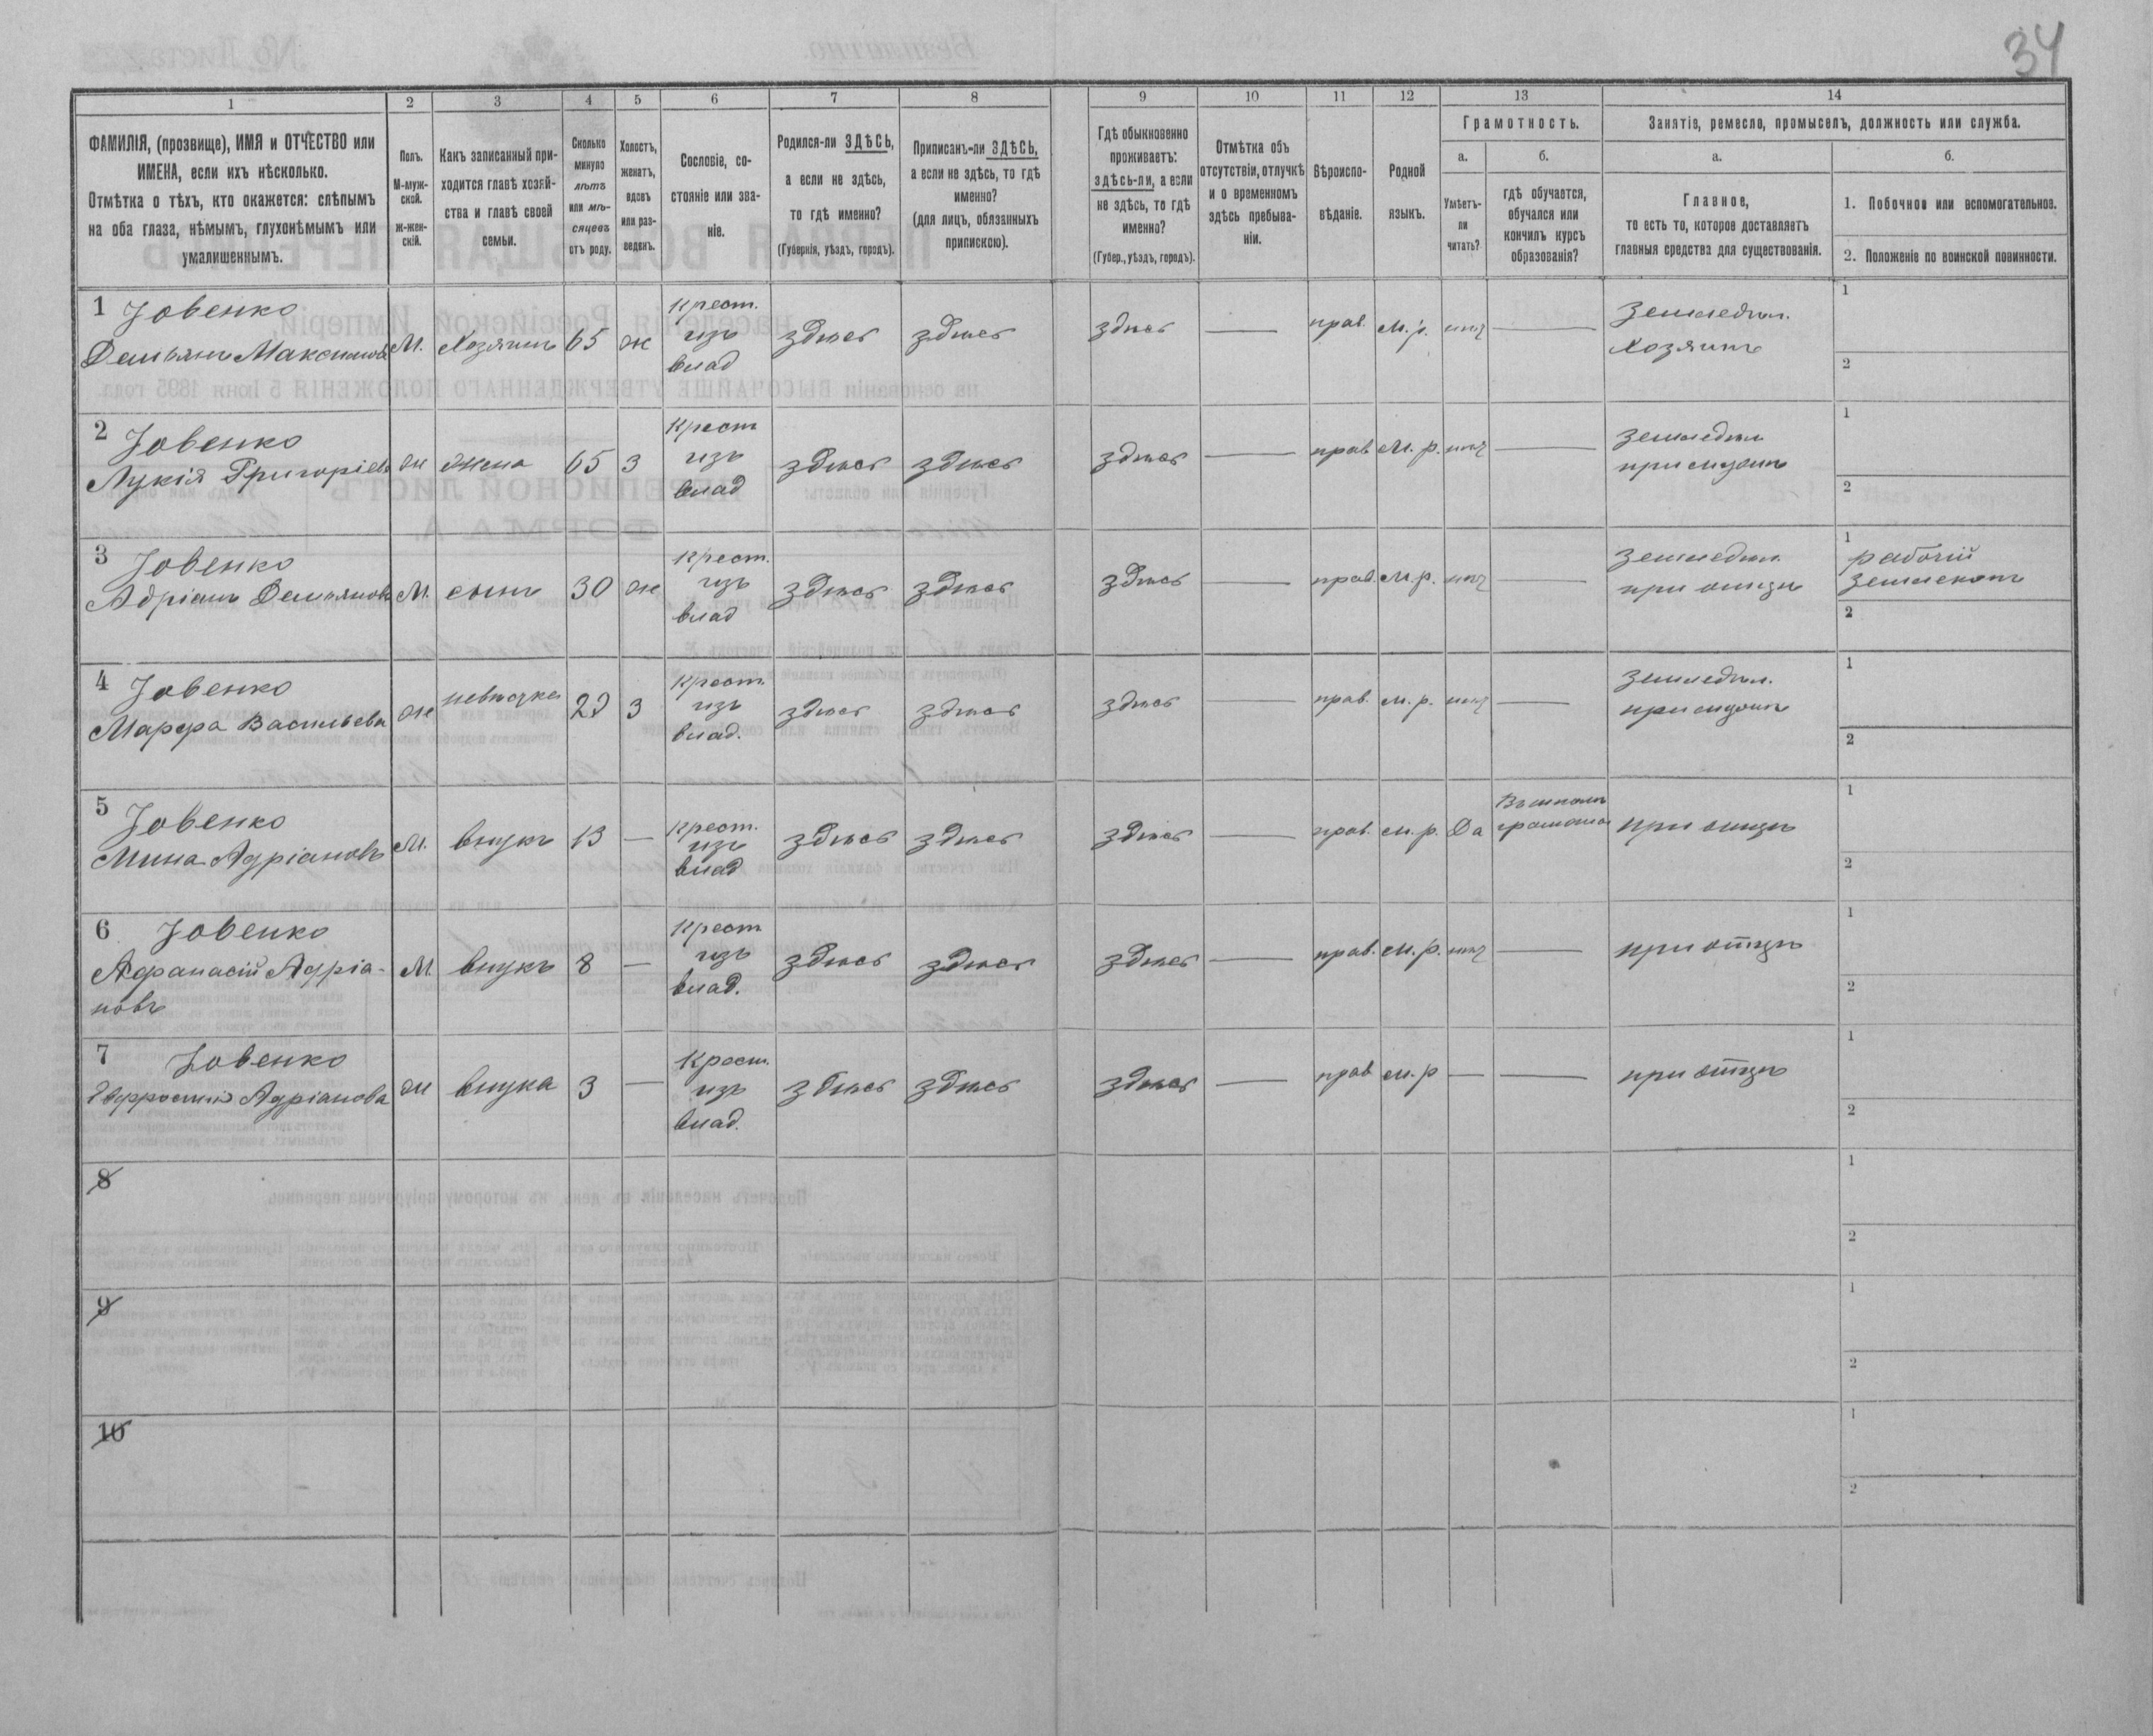 34
1 2 3 4 5 6 7 8 9 10 11 12 13 14
ФАМИЛІЯ, (прозвище), ИМЯ и ОТЧЕСТВО или
ИМЕНА, если ихъ нѣсколько.
Отмѣтка о тѣхъ, кто окажется: слѣпымъ
на оба глаза, нѣмымъ, глухонѣмымъ или
умалишеннымъ.
Полъ.
М-муж-
ской.
Ж-жен-
скій.
Какъ записанный при-
ходится главѣ хозяй-
ства и главѣ своей
семьи.
Сколько
минуло
лѣтъ
или мѣ-
сяцевъ
отъ роду.
Холостъ,
женатъ,
вдовъ
или раз-
веденъ.
Сословіе, со-
стояніе или зва-
ніе.
Родился-ли ЗДѢСЬ,
а если не здѣсь,
то гдѣ именно?
(Губернія, уѣздъ, городъ).
Приписанъ-ли ЗДѢСЬ,
а если не здѣсь, то гдѣ
именно?
(для лицъ, обязанныхъ
припискою).
Гдѣ обыкновенно
проживаетъ:
здѣсь-ли, а если
не здѣсь, то гдѣ
именно?
(Губер., уѣздъ, городъ).
Отмѣтка объ
отсутствіи, отлучкѣ
и о временномъ
здѣсь пребыва-
ніи.
Вѣроиспо-
вѣданіе.
Родной
языкъ.
Грамотность.
а.
Умѣетъ-
ли
читать?
б.
гдѣ обучается,
обучался или
кончилъ курсъ
образованія?
Занятіе, ремесло, промыселъ, должность или служба.
а.
Главное,
то есть то, которое доставляетъ
главныя средства для существованія.
б.
1. Побочное или вспомогательное.
2. Положеніе по воинской повинности.
1 Іовенко
Демьянъ Максимовъ М. Хозяинъ 65 ж Крест. изъ влад здѣсь здѣсь здѣсь — прав. М. р. нѣт — Земледѣл. Хозяинъ 1 2
2 Іовенко
Лукія Григоріев ж жена 65 з Крест изъ влад здѣсь здѣсь здѣсь — прав М. р. нѣт — Земледѣл при мужѣ 1 2
3 Іовенко
Адріанъ Демьяновъ М. сынъ 30 ж Крест. изъ влад здѣсь здѣсь здѣсь — прав. М. р. нѣт — Земледѣл. при отцѣ 1 рабочій 2
4 Іовенко
Марфа Васильева ж невѣстка 29 з Крест. изъ влад. здѣсь здѣсь здѣсь — прав. м. р. нѣт — Земледѣл. при мужѣ 1 2
5 Іовенко
Мина Адріановъ М. внукъ 13 — Крест. изъ влад здѣсь здѣсь здѣсь — прав. м. р. Да Въ школѣ грамоты при отцѣ 1 2
6 Іовенко
Афанасій Адріа-
новъ М внукъ 8 — Крест изъ влад. здѣсь здѣсь здѣсь — прав. М. р. нѣт — при отцѣ 1 2
7 Іовенко
Евфросинія Адріанова ж внука 3 — Крест. изъ влад. здѣсь здѣсь здѣсь — прав м. р — — при отцѣ 1 2
8 1 2
9 1 2
10 1 2